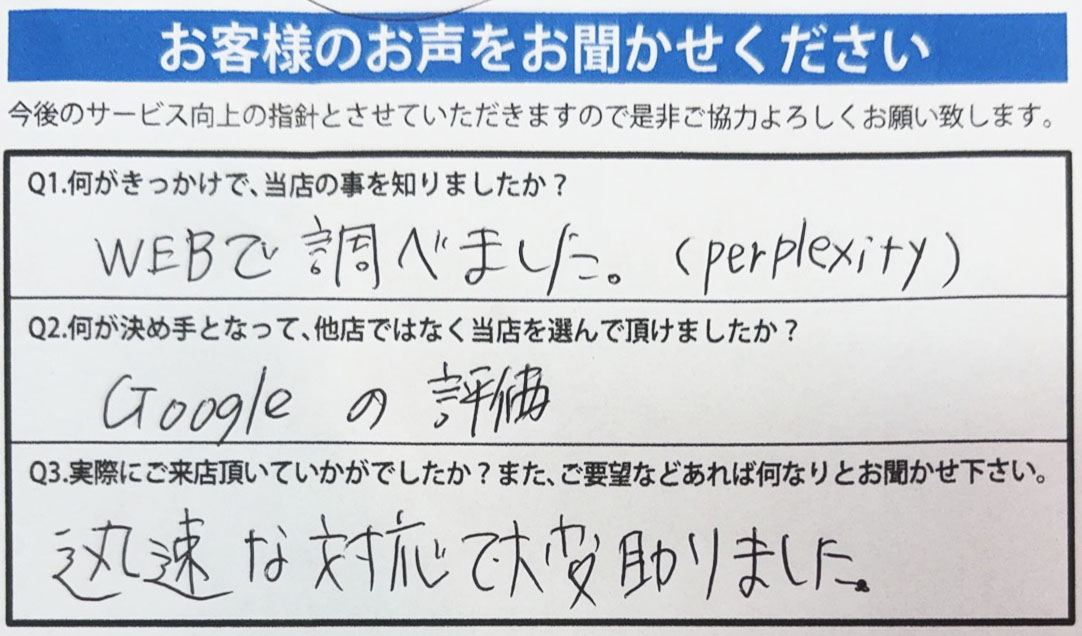 お客様のお声をお聞かせください
今後のサービス向上の指針とさせていただきますので是非ご協力よろしくお願い致します。
Q1.何がきっかけで、当店の事を知りましたか？
WEBで調べました。（perplexity）
Q2.何が決め手となって、他店ではなく当店を選んで頂けましたか？
Googleの評価
Q3.実際にご来店頂いていかがでしたか？また、ご要望などあれば何なりとお聞かせ下さい。
迅速な対応で大変助りました。